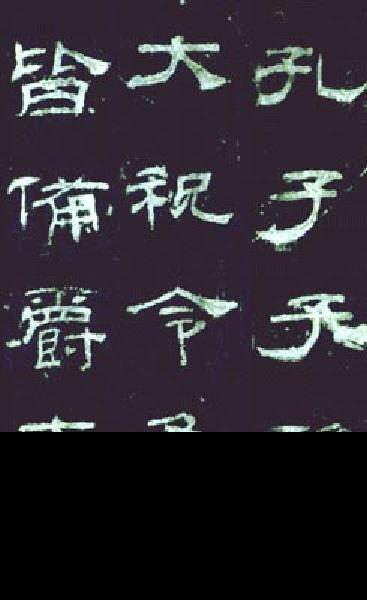 孔子子
大祝令
皆備爵